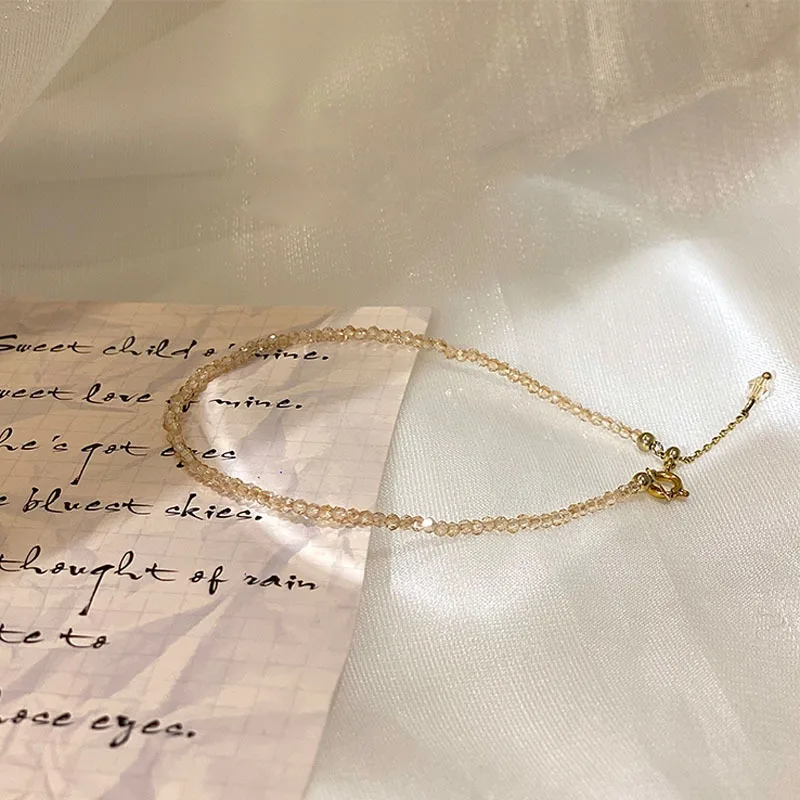 Sweet child o' mine.
weet love of mine.
he's got eyes
e bluest skies.
thought of rain
te to
hose eyes.